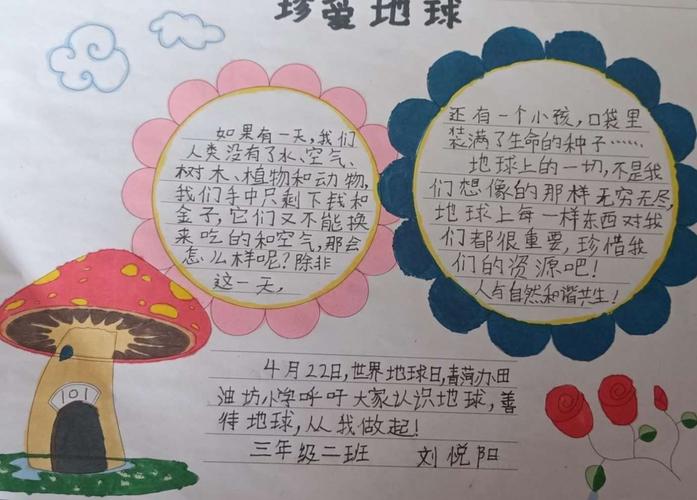 珍爱地球
如果有一天，我们
人类没有了水、空气、
树木、植物和动物，
我们手中只剩下找和
金子，它们又不能换
来吃的和空气，那会
怎么样呢？除非
这一天，
还有一个小孩，口袋里
装满了生命的种子……
地球上的一切，不是我
们想像的那样无穷无尽，
地球上每一样东西对我
们都很重要，珍惜我
们的资源吧！
人与自然和谐共生！
4月22日，世界地球日，青菏办田
油坊小学呼吁大家认识地球，善
待地球，从我做起！
三年级二班 刘悦阳
101